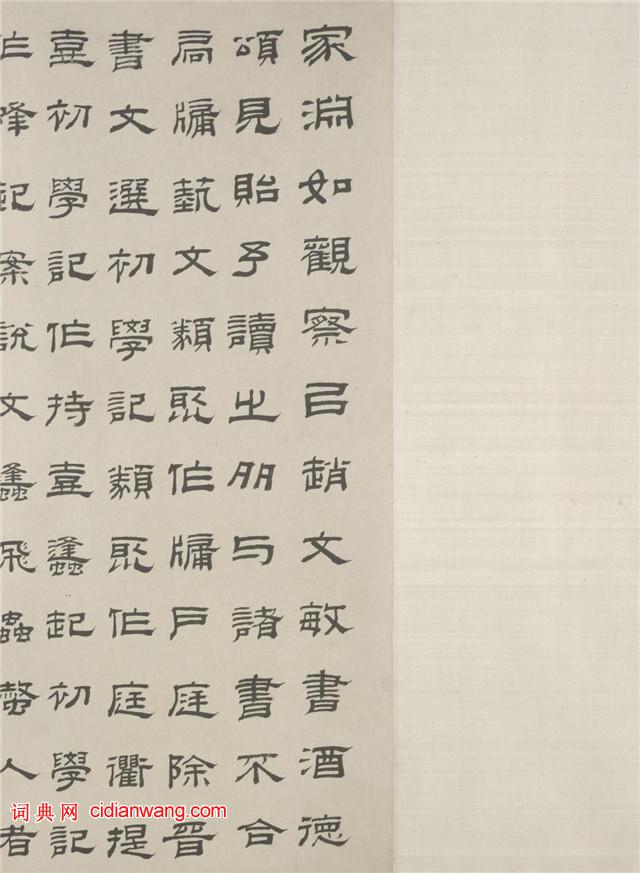 家淵如觀察㠯趙文敏書酒德
頌見貽予讀之多与諸書不合
扃牖埶文類聚作牖戶庭除晉
書文選初學記類聚作庭衢提
壺初學記作持壺蠭起初學記
作起案說文蠭飛蟲螫人者
词典网 cidianwang.com